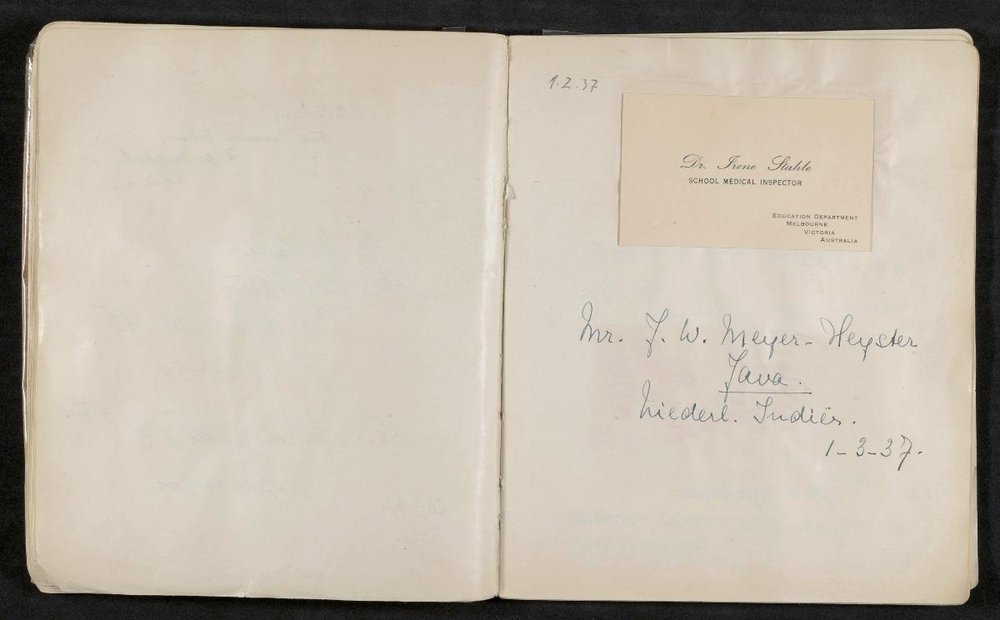 1.2.37
Dr. Irene Stahle
SCHOOL MEDICAL INSPECTOR
EDUCATION DEPARTMENT
MELBOURNE
VICTORIA
AUSTRALIA
Mr. J. W. Meyer-Heyster
Java.
Niederl. Indiën.
1-3-37.